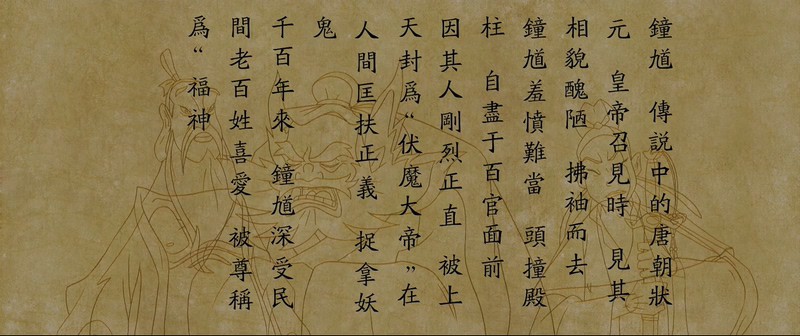 鐘馗 傳説中的唐朝狀
元 皇帝召見時 見其
相貌醜陋 拂袖而去
鐘馗羞憤難當 頭撞殿
柱 自盡于百官面前
因其人剛烈正直 被上
天封爲“伏魔大帝”在
人間匡扶正義 捉拿妖
鬼
千百年來 鐘馗深受民
間老百姓喜愛 被尊稱
爲“福神